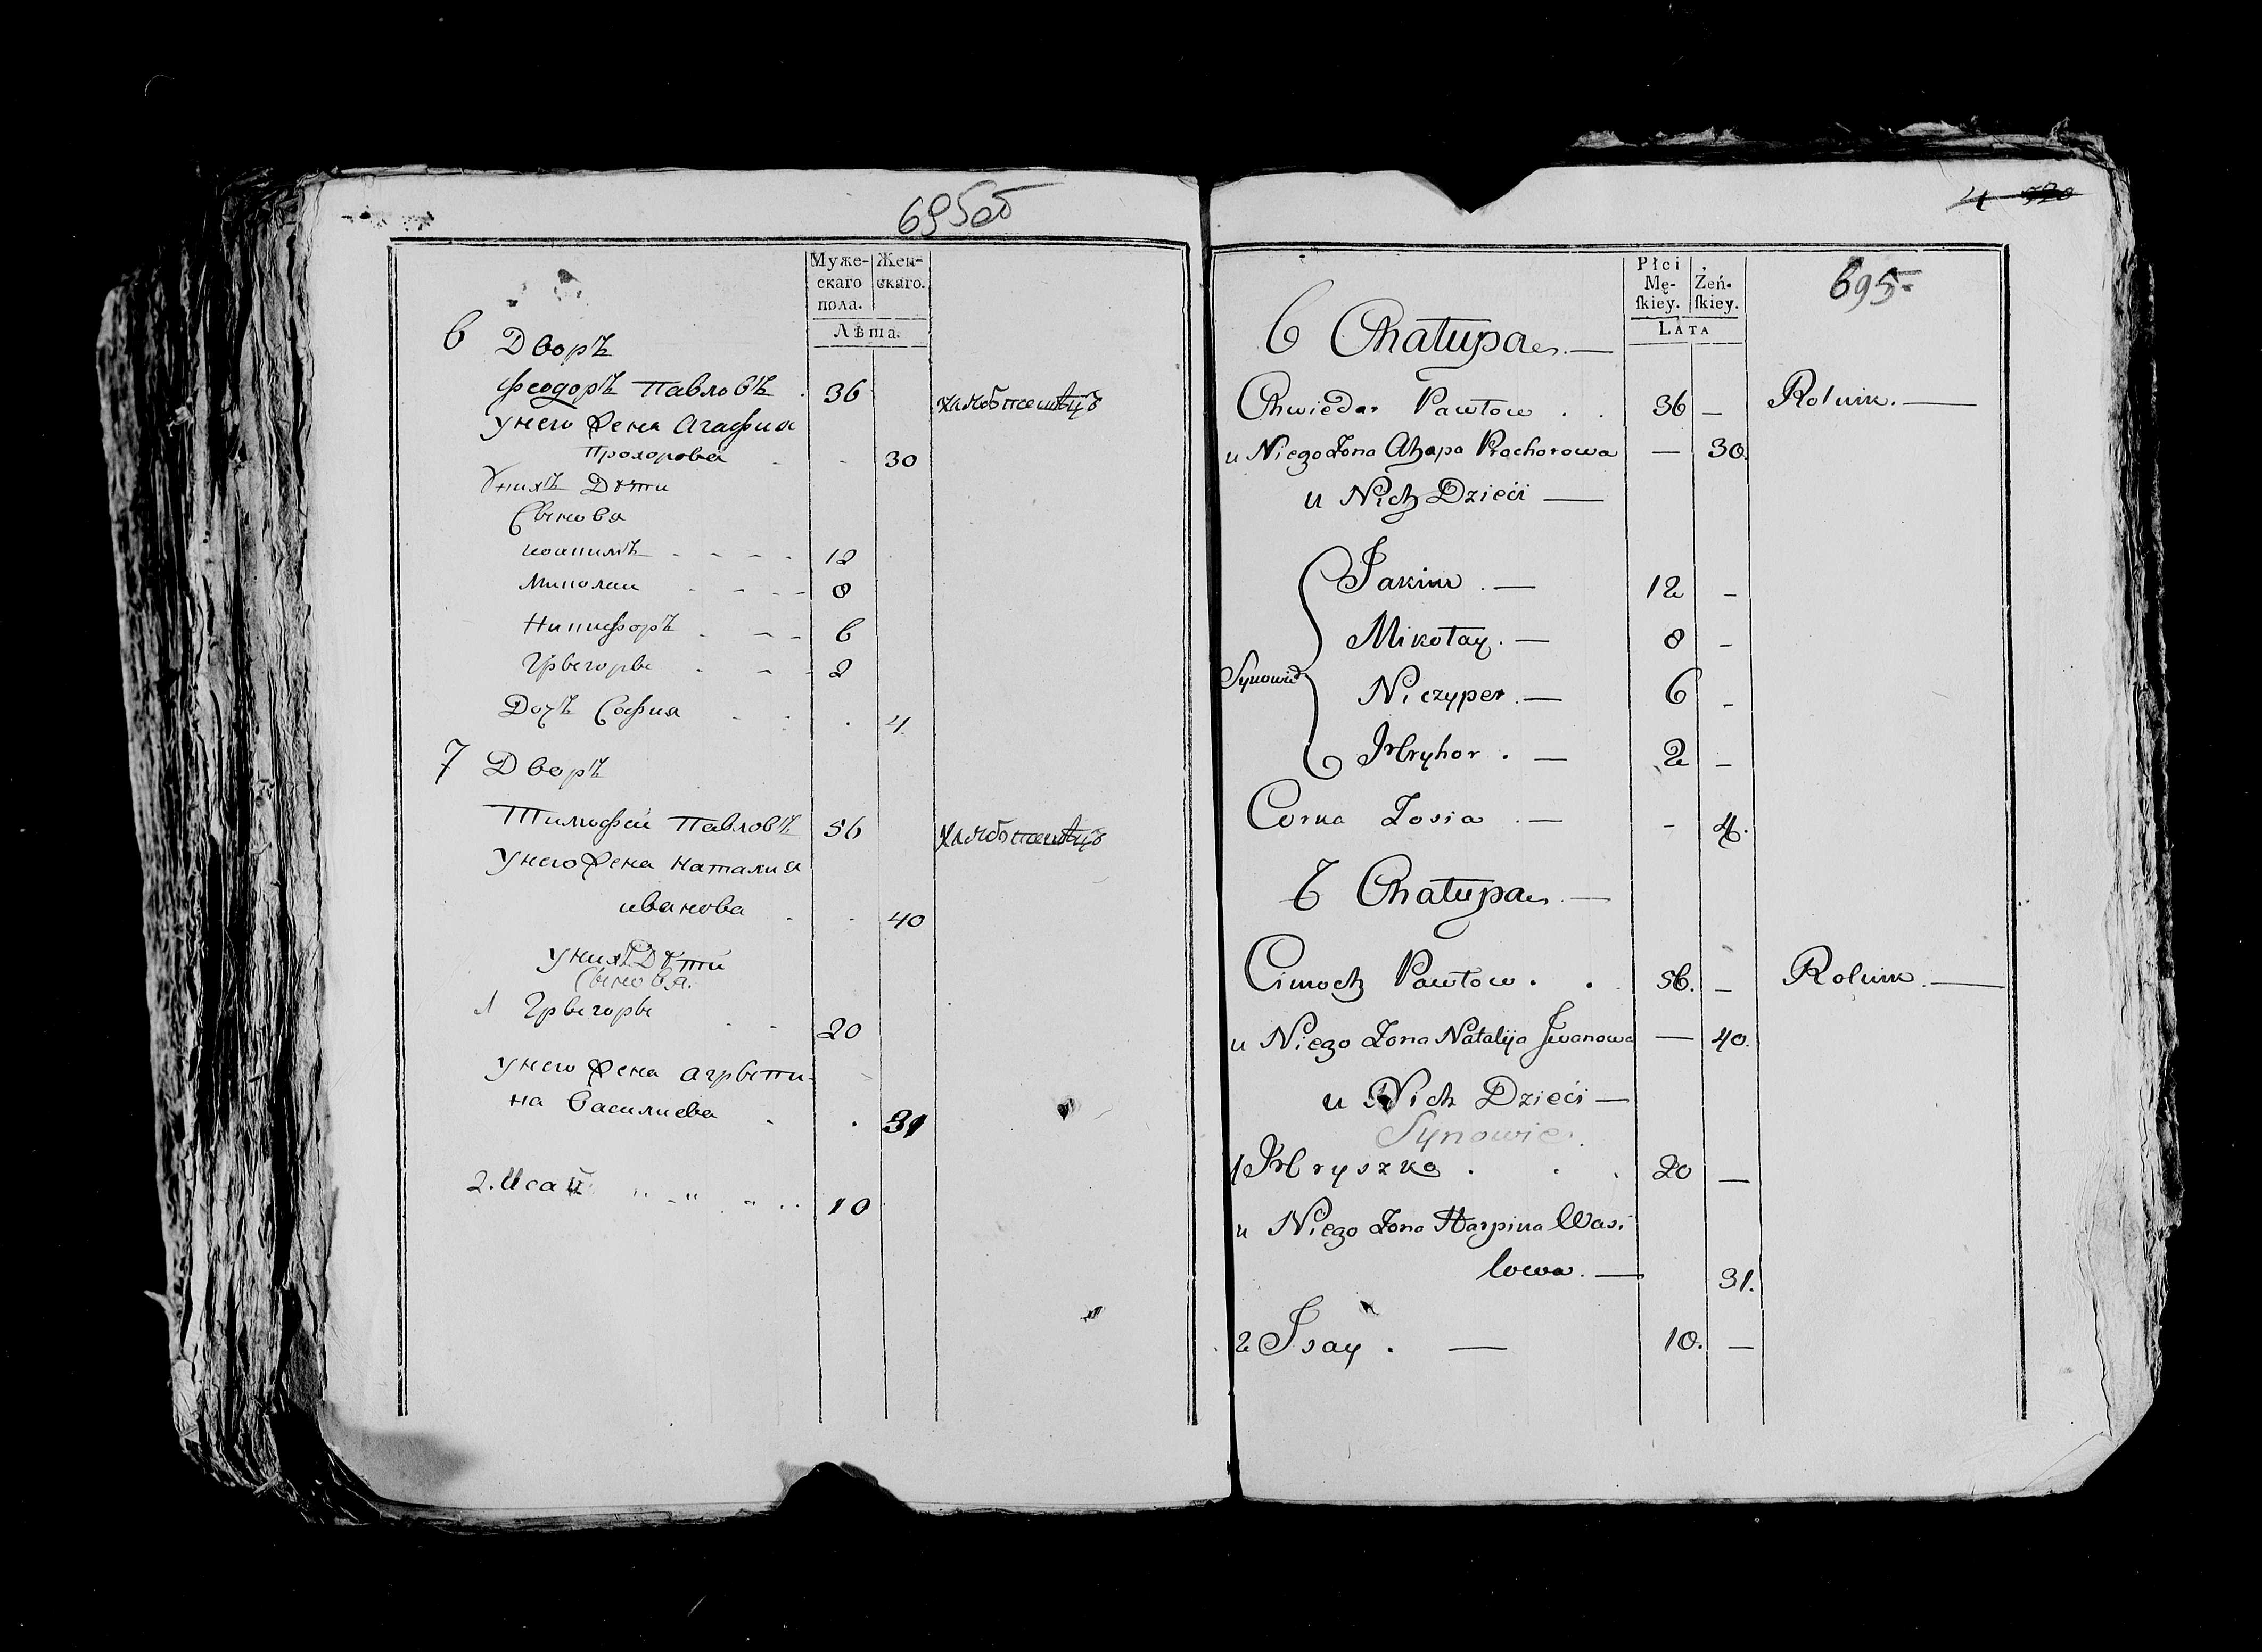 695об
Муже-
скаго
пола.
Жен-
скаго.
Лѣта.
6 Дворъ
Феодоръ Павловъ . 36 хлебопашецъ
Унего жена Агафия
Прохорова - - 30
Унихъ Дѣти
Сыновя
иоакимъ - - - - 12
Миколаи - - - - 8
Никифоръ - - - 6
Грыгоры - - - 2
Дочъ София - - . 4
7 Дворъ
Тимофей Павловъ 56 хлебопашецъ
Унего жена Наталия
иванова - - 40
Унихъ Дѣти
Сыновя.
1 Грыгоры - - 20
Унего жена Агрыпи-
на Василиева . . 31
2. Исай 10
695-
Płci
Mę-
ſkiey.
Żeń-
ſkiey.
LATA
6 Chałupa. —
Chwiedor Pawłow . . 36 — Rolnik. —
u Niego Żona Ahapa Prochorowa — 30.
u Nich Dzieći —
Synowie
Jakim . — 12 -
Mikołay. — 8 -
Niczyper. — 6 -
Hryhor . — 2 -
Corka Zosia . — - 4.
7 Chałupa. —
Cimoch Pawłow . . 56. - Rolnik. —
u Niego Żona Natalija Jwanowa — 40.
u Nich Dzieći —
Synowie.
1 Hryszko . . . 20 —
u Niego Żona Harpina Wasi
lowa. — 31.
2 Jsay . — 10. —